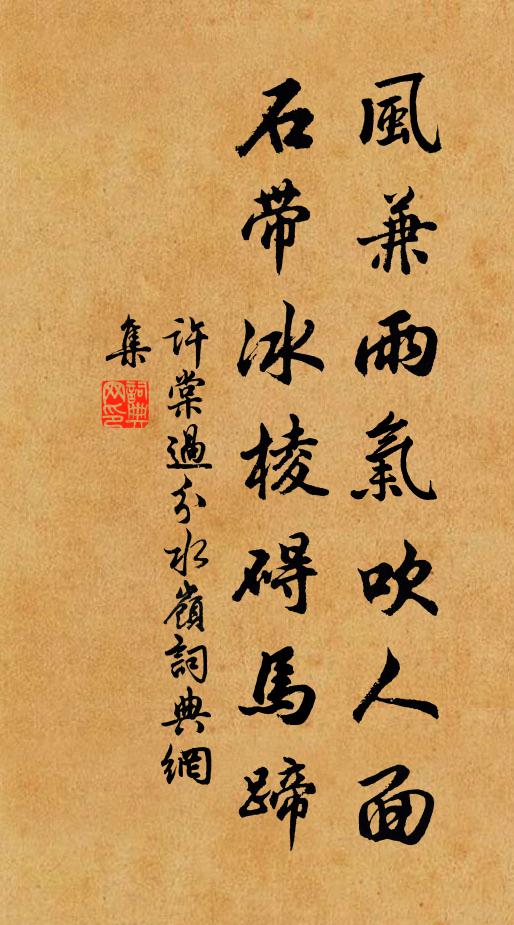 風兼雨氣吹人面
石帶冰棱碍馬蹄
許棠過分水嶺詞典網
集
詞典
网印